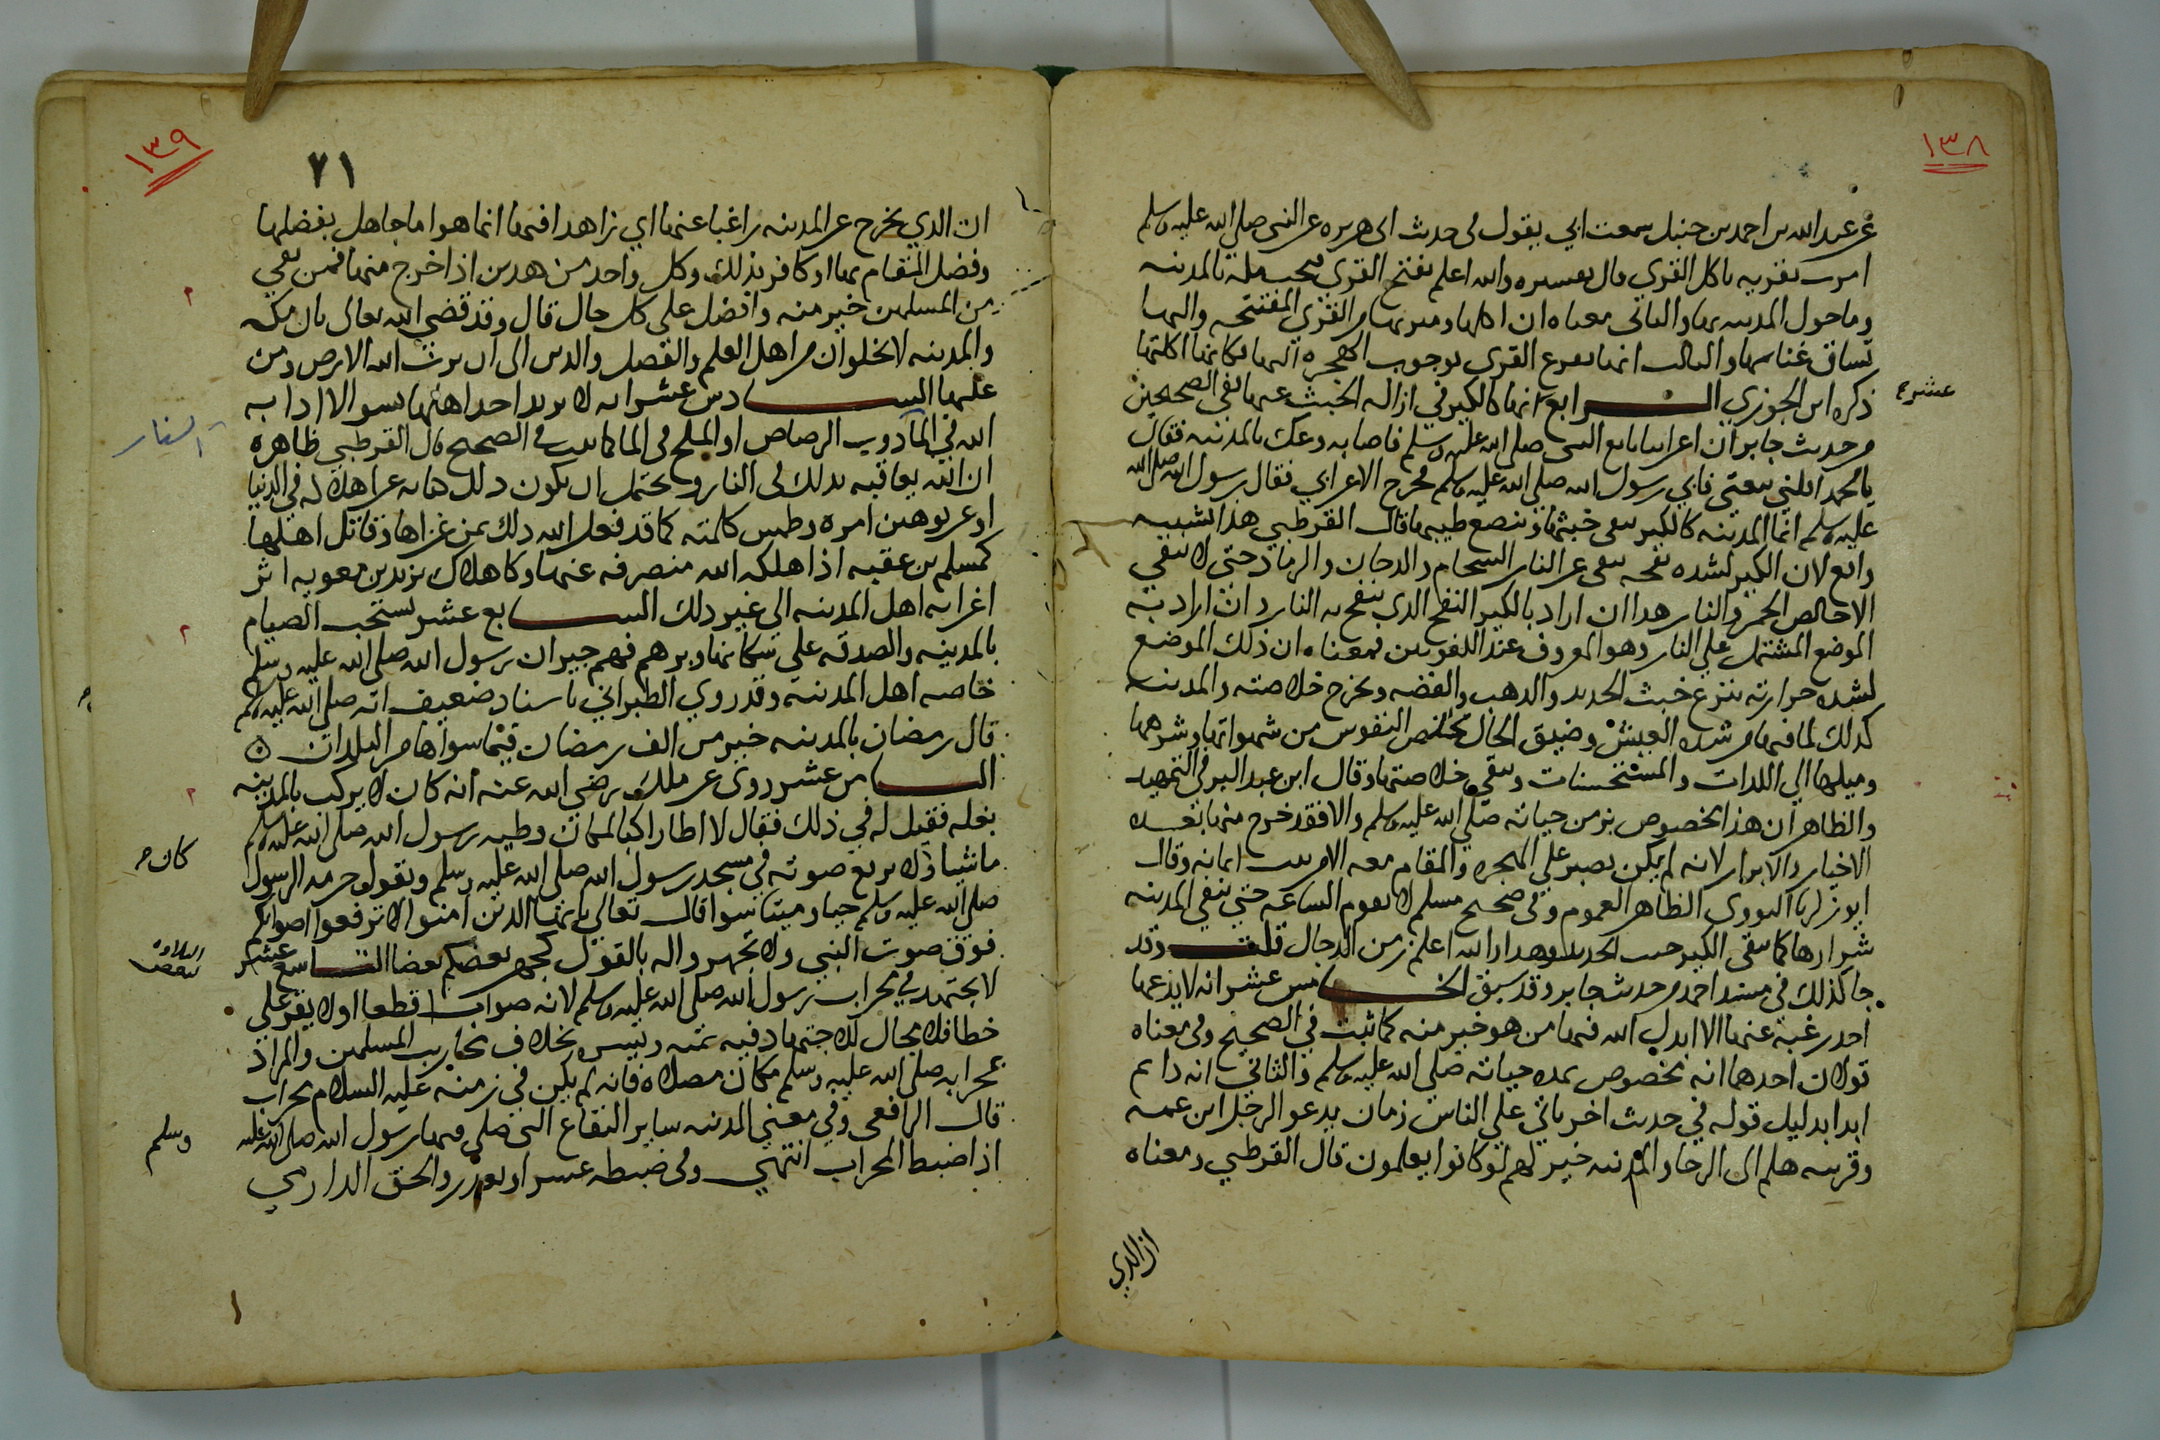 ١٣٨
عن عبد الله بن احمد بن حنبل سمعت ابي يقول في حدث ابي هريره عن النبي صلي الله عليه وسلم
امرت بقريه تاكل القري قال تفسيره والله اعلم بفتح القري فتحت مكة بالمدينه
وما حول المدينه بها والثاني معناه ان اكلها وميرتها من القري المفتتحه واليها
تساق غنايمها والثالث انها تفرغ القري بوجوب الهجره اليها فكانها اكلتها
ذكره ابن الجوزي الرابع انها كالكير في ازاله الخبث عنها ففي الصحيحين
عشر ح
من حديث جابر ان اعرابيا بايع النبي صلي الله عليه وسلم فاصابه وعك بالمدينه فقال
يا محمد اقلني بيعتي فابي رسول الله صلي الله عليه وسلم فخرج الاعرابي فقال رسول الله صلي الله
عليه وسلم انما المدينه كالكير تنفي خبثها وتنصع طيبها قال القرطبي هذا تشبيه
واقع لان الكير لشده نفحه ينفي عن النار السخام والدخان والرماد حتي لا يبقي
الا خالص الجمر والنار هذا ان اراد بالكير النفخ الذي ينفخ به النار وان اراد به
الموضع المشتمل علي النار وهو المعروف عند اللغويين فمعناه ان ذلك الموضع
لشده حرارته ينزع خبث الحديد والذهب والفضه ويخرج خلاصته والمدينه
كذلك لما فيها من شده العيش وضيق الحال تخلص النفوس من شهواتها وشرهها
وميلها الي اللذات والمستحسنات وتبقي خلاصتها وقال ابن عبد البر في التمهيد
والظاهر ان هذا مخصوص بزمن حياته صلي الله عليه وسلم والا فقد خرج منها بعده
الاخيار والابرار لانه لم يكن يصبر علي الهجره والمقام معه الا من ثبت ايمانه وقال
ابو زكريا النووي الظاهر العموم وفي صحيح مسلم لا تقوم الساعه حتي تنفي المدينه
شرارها كما ينفي الكير خبث الحديد وهذا والله اعلم زمن الدجال قلت وقد
جا كذلك في مسند احمد من حدث جابر وقد سبق الخامس عشر انه لا يدعها
احد رغبة عنها الا ابدل الله فيها من هو خير منه كما ثبت في الصحيح وفي معناه
قولان احدهما انه مخصوص بمده حياته صلي الله عليه وسلم والثاني انه دايم
ابدا بدليل قوله في حدث اخر ياتي علي الناس زمان يدعو الرجل ابن عمه
وقريبه هلم الي الرخا والمدينه خير لهم لو كانوا يعلمون قال القرطبي ومعناه
ان الذي
١٣٩
٧١
ان الذي يخرج عن المدينه راغبا عنها اي زاهدا فيها انما هو اما جاهل بفضلها
وفضل المقام بها او كافر بذلك وكل واحد من هذين اذا خرج منها فمن بقي
من المسلمين خير منه وافضل علي كل حال قال وقد قضي الله تعالي بان مكه
والمدينه لا يخلوان من اهل العلم والفضل والدين الي ان يرث الله الارض ومن
عليها السادس عشر انه لا يريد احد اهلها بسوء الا اذابه
الله في النار ذوب الرصاص او الملح في الما كما ثبت في الصحيح قال القرطبي ظاهره
ان الله يعاقبه بذلك في النار ويحتمل ان يكون ذلك كنايه عن اهلاكه في الدنيا
او عن توهين امره وطمس كلمته كما قد فعل الله ذلك بمن غزاها وقاتل اهلها
كمسلم بن عقبه اذ اهلكه الله منصرفه عنها وكاهلاك يزيد بن معويه اثر
اغرابه اهل المدينه الي غير ذلك السابع عشر يستحب الصيام
بالمدينه والصدقه علي سكانها وبرهم فهم جيران رسول الله صلي الله عليه وسلم
خاصه اهل المدينه وقد روي الطبراني باسناد ضعيف انه صلي الله عليه وسلم
قال رمضان بالمدينه خير من الف رمضان فيما سواها من البلدان
الثامن عشر روي عن ملك رضي الله عنه انه كان لا يركب بالمدينه
بغله فقيل له في ذلك فقال لا اطا راكبا لمكان وطيه رسول الله صلي الله عليه وسلم
كان ح
ماشيا وان يرفع صوته في مسجد رسول الله صلي الله عليه وسلم ويقول حرمه الرسول
صلي الله عليه وسلم حيا وميتا سوا قال تعالي يا ايها الذين امنوا لا ترفعوا اصواتكم
فوق صوت النبي ولا تجهروا له بالقول كجهر بعضكم لبعض التاسع عشر
لا يجتهد في محراب رسول الله صلي الله عليه وسلم لانه صواب قطعا اولا يقر علي
خطا فلا مجال للاجتهاد فيه يمنه ويسره بخلاف محاريب المسلمين والمراد
بمحرابه صلي الله عليه وسلم مكان مصلاه فانه لم يكن في زمنه عليه السلام محراب
قال الرافعي وفي معني المدينه ساير البقاع التي صلي فيها رسول الله صلي الله عليه
وسلم
اذا ضبط المحراب انتهي وفي ضبطه عسر او تعذر والحق الدارمي